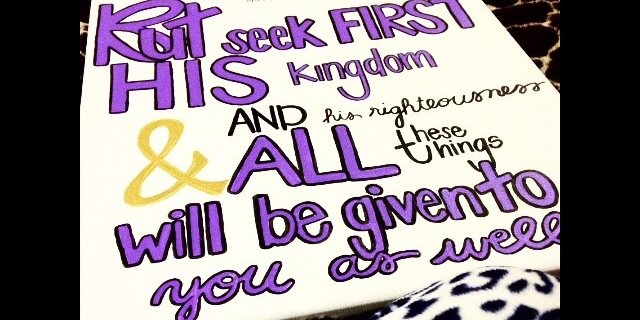 But seek FIRST
HIS kingdom
AND his righteousness
& ALL these things
will be given to
you as well